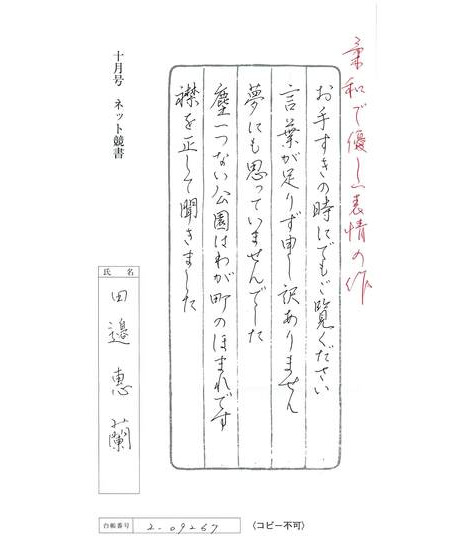 柔和で優しい表情の作
お手すきの時にでもご覧ください
言葉が足りず申し訳ありません
夢にも思っていませんでした
塵一つない公園はわが町のほまれです
襟を正して聞きました
十月号 ネット競書
氏名
田邉恵蘭
台帳番号
2-09267
〈コピー不可〉